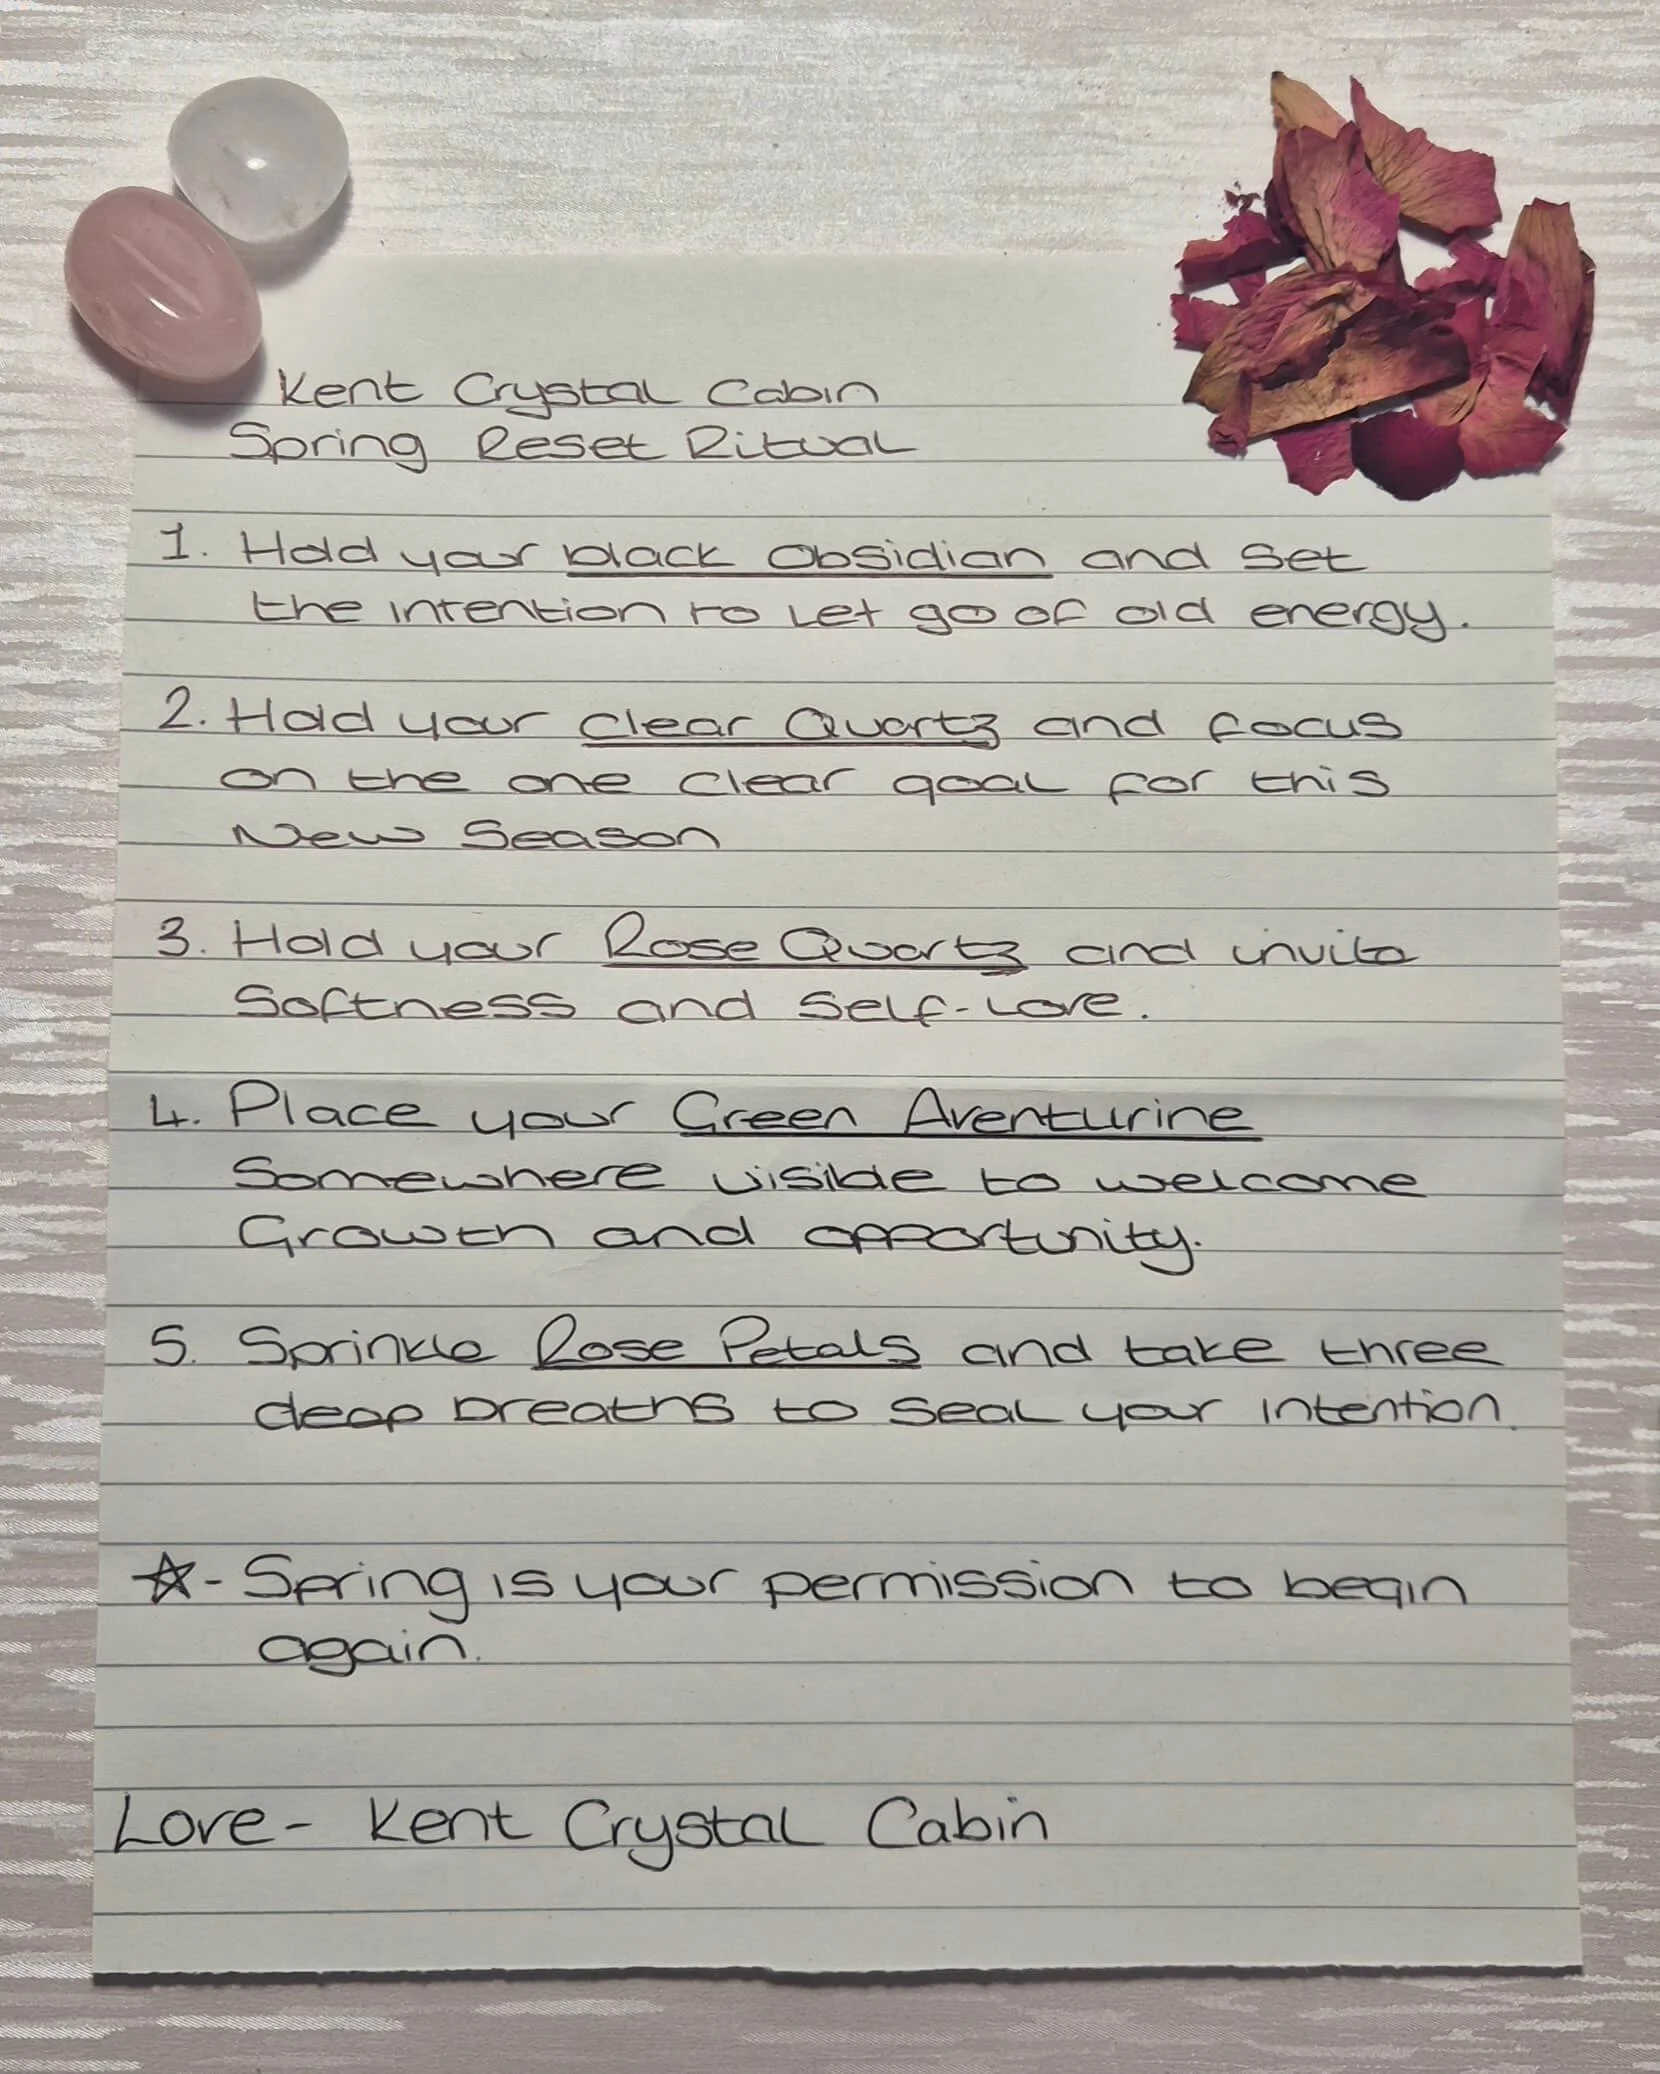 Kent Crystal Cabin
Spring Reset Ritual
1. Hold your black Obsidian and set
the intention to let go of old energy.
2. Hold your clear Quartz and focus
on the one clear goal for this
New Season
3. Hold your Rose Quartz and invite
Softness and Self-Love.
4. Place your Green Aventurine
Somewhere visible to welcome
Growth and opportunity.
5. Sprinkle Rose Petals and take three
deep breaths to seal your intention.
☆- Spring is your permission to begin
again.
Love- Kent Crystal Cabin